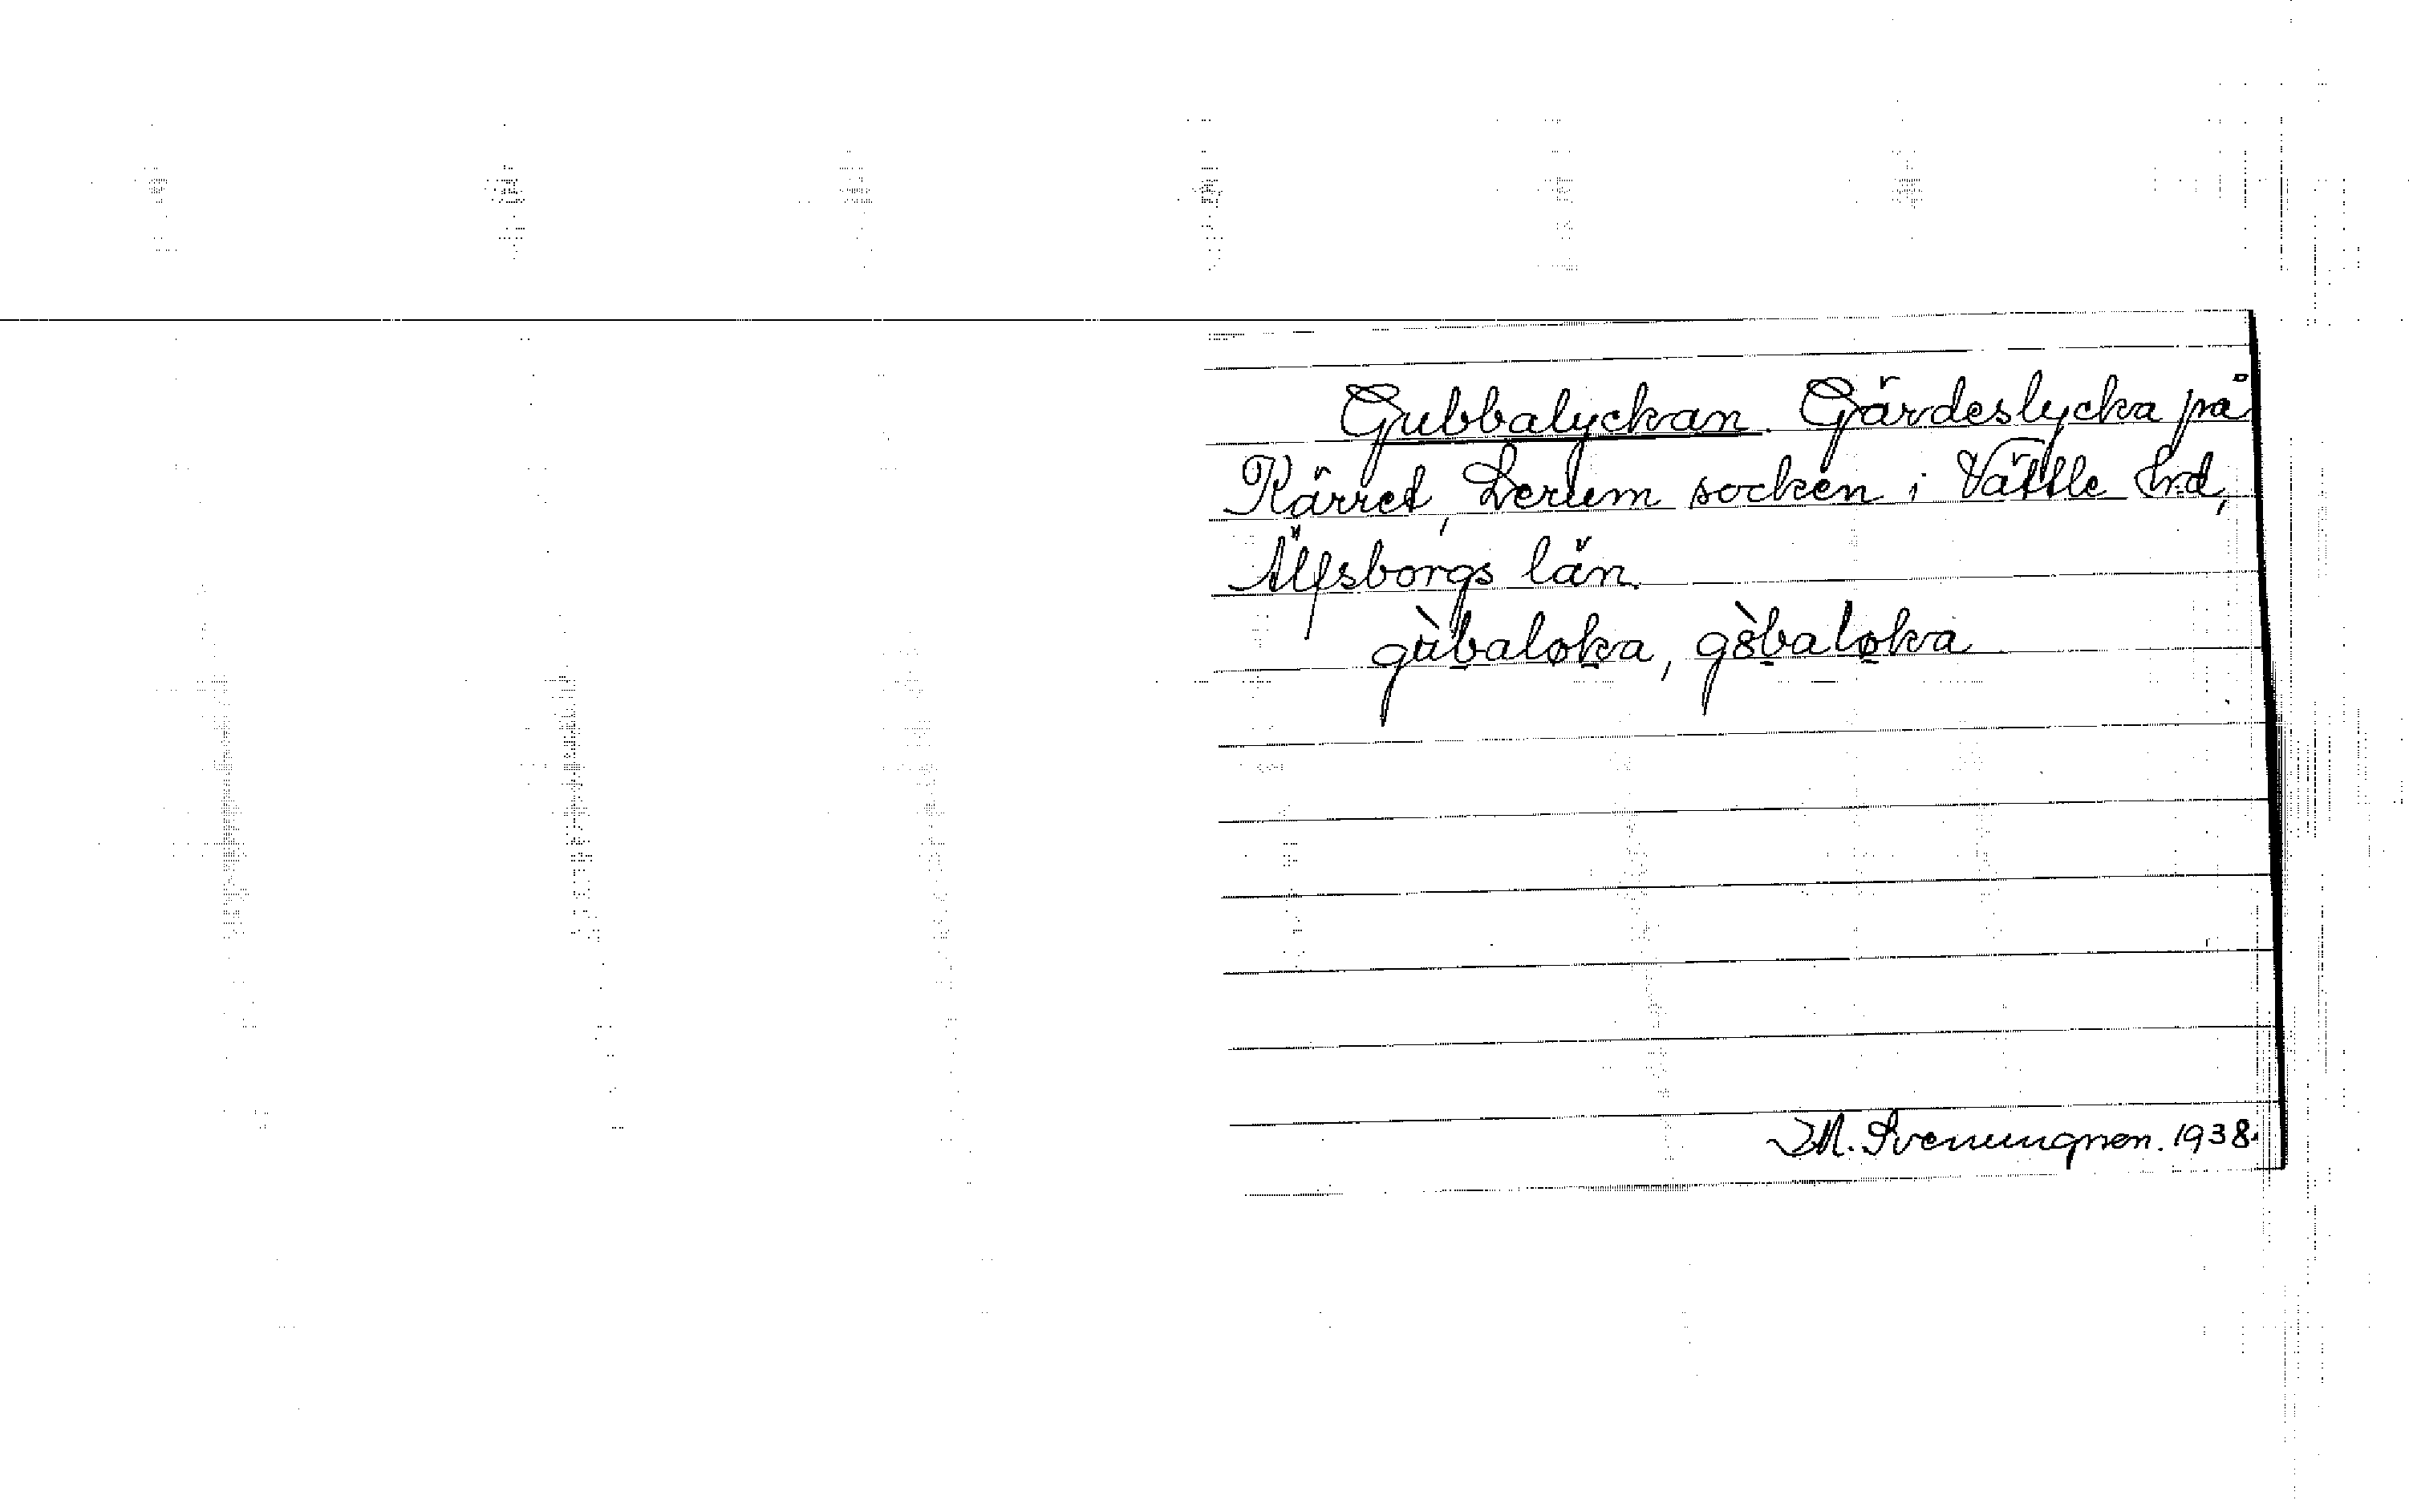 Gubbalyckan. Gärdeslycka på
Kärret, Lerum socken i Vättle hrd,
Älfsborgs län.
gùbaloka, gòbaloka
M. Svenungsson. 1938.